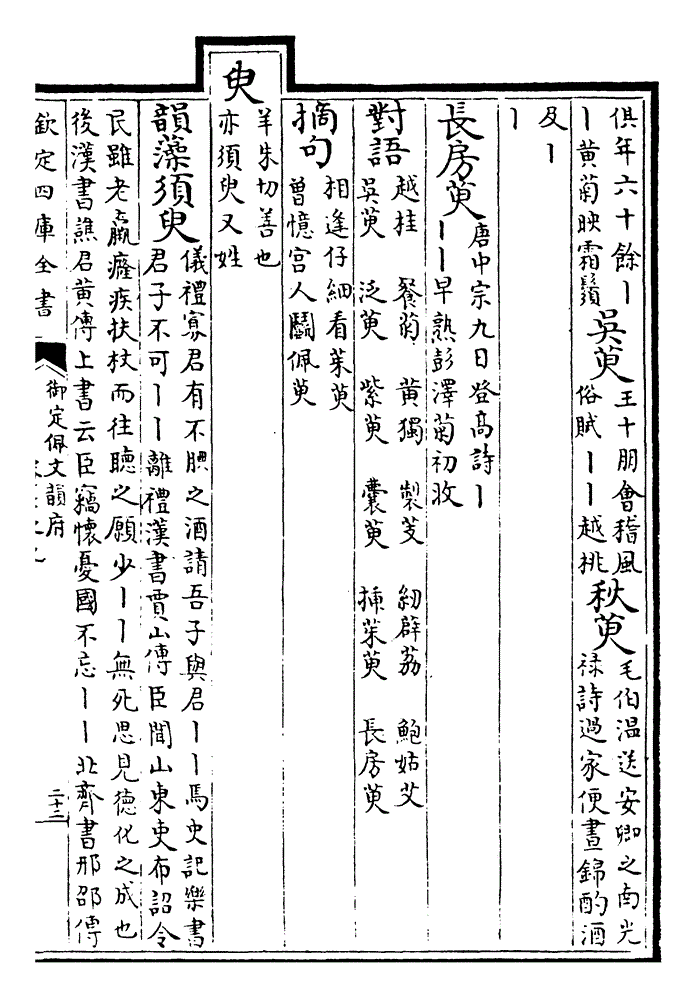 俱年六十餘丨
丨黄菊映霜鬚
吳萸
王十朋會稽風
俗賦丨丨越桃
秋萸
毛伯温送安卿之南光
禄詩過家便晝錦酌酒
及丨
丨
長房萸
唐中宗九日登高詩丨
丨丨早熟彭澤菊初收
對語
越桂 餐菊 黄獨 製芰 紉薜荔 鮑姑艾
吳萸 泛萸 紫萸 囊萸 揷茱萸 長房萸
摘句
相逢仔細看茱萸
曽憶宫人鬭佩萸
臾
羊朱切善也
亦須臾又姓
韻藻
須臾
儀禮寡君有不腆之酒請吾子與君丨丨焉史記樂書
君子不可丨丨離禮漢書賈山傳臣聞山東吏布詔令
民雖老羸癃疾扶杖而往聽之願少丨丨無死思見德化之成也
後漢書譙君黄傳上書云臣竊懷憂國不忘丨丨北齊書邢邵傳
欽定四庫全書
御定佩文韻府
二十三